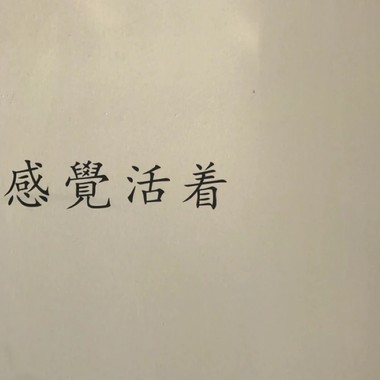 感覺活着